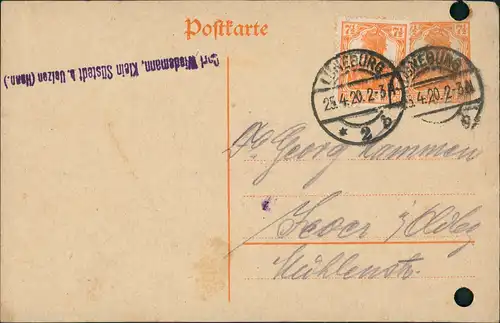 Postkarte
Carl Wiedemann, Klein Süstedt b. Uelzen (Hann.)
7½ 7½
LÜNEBURG
25.4.20.2-3N
* 2 b
LÜNEBURG
25.4.20.2-3N
Georg Lammen
Jever i/Oldbg
Mühlenstr.